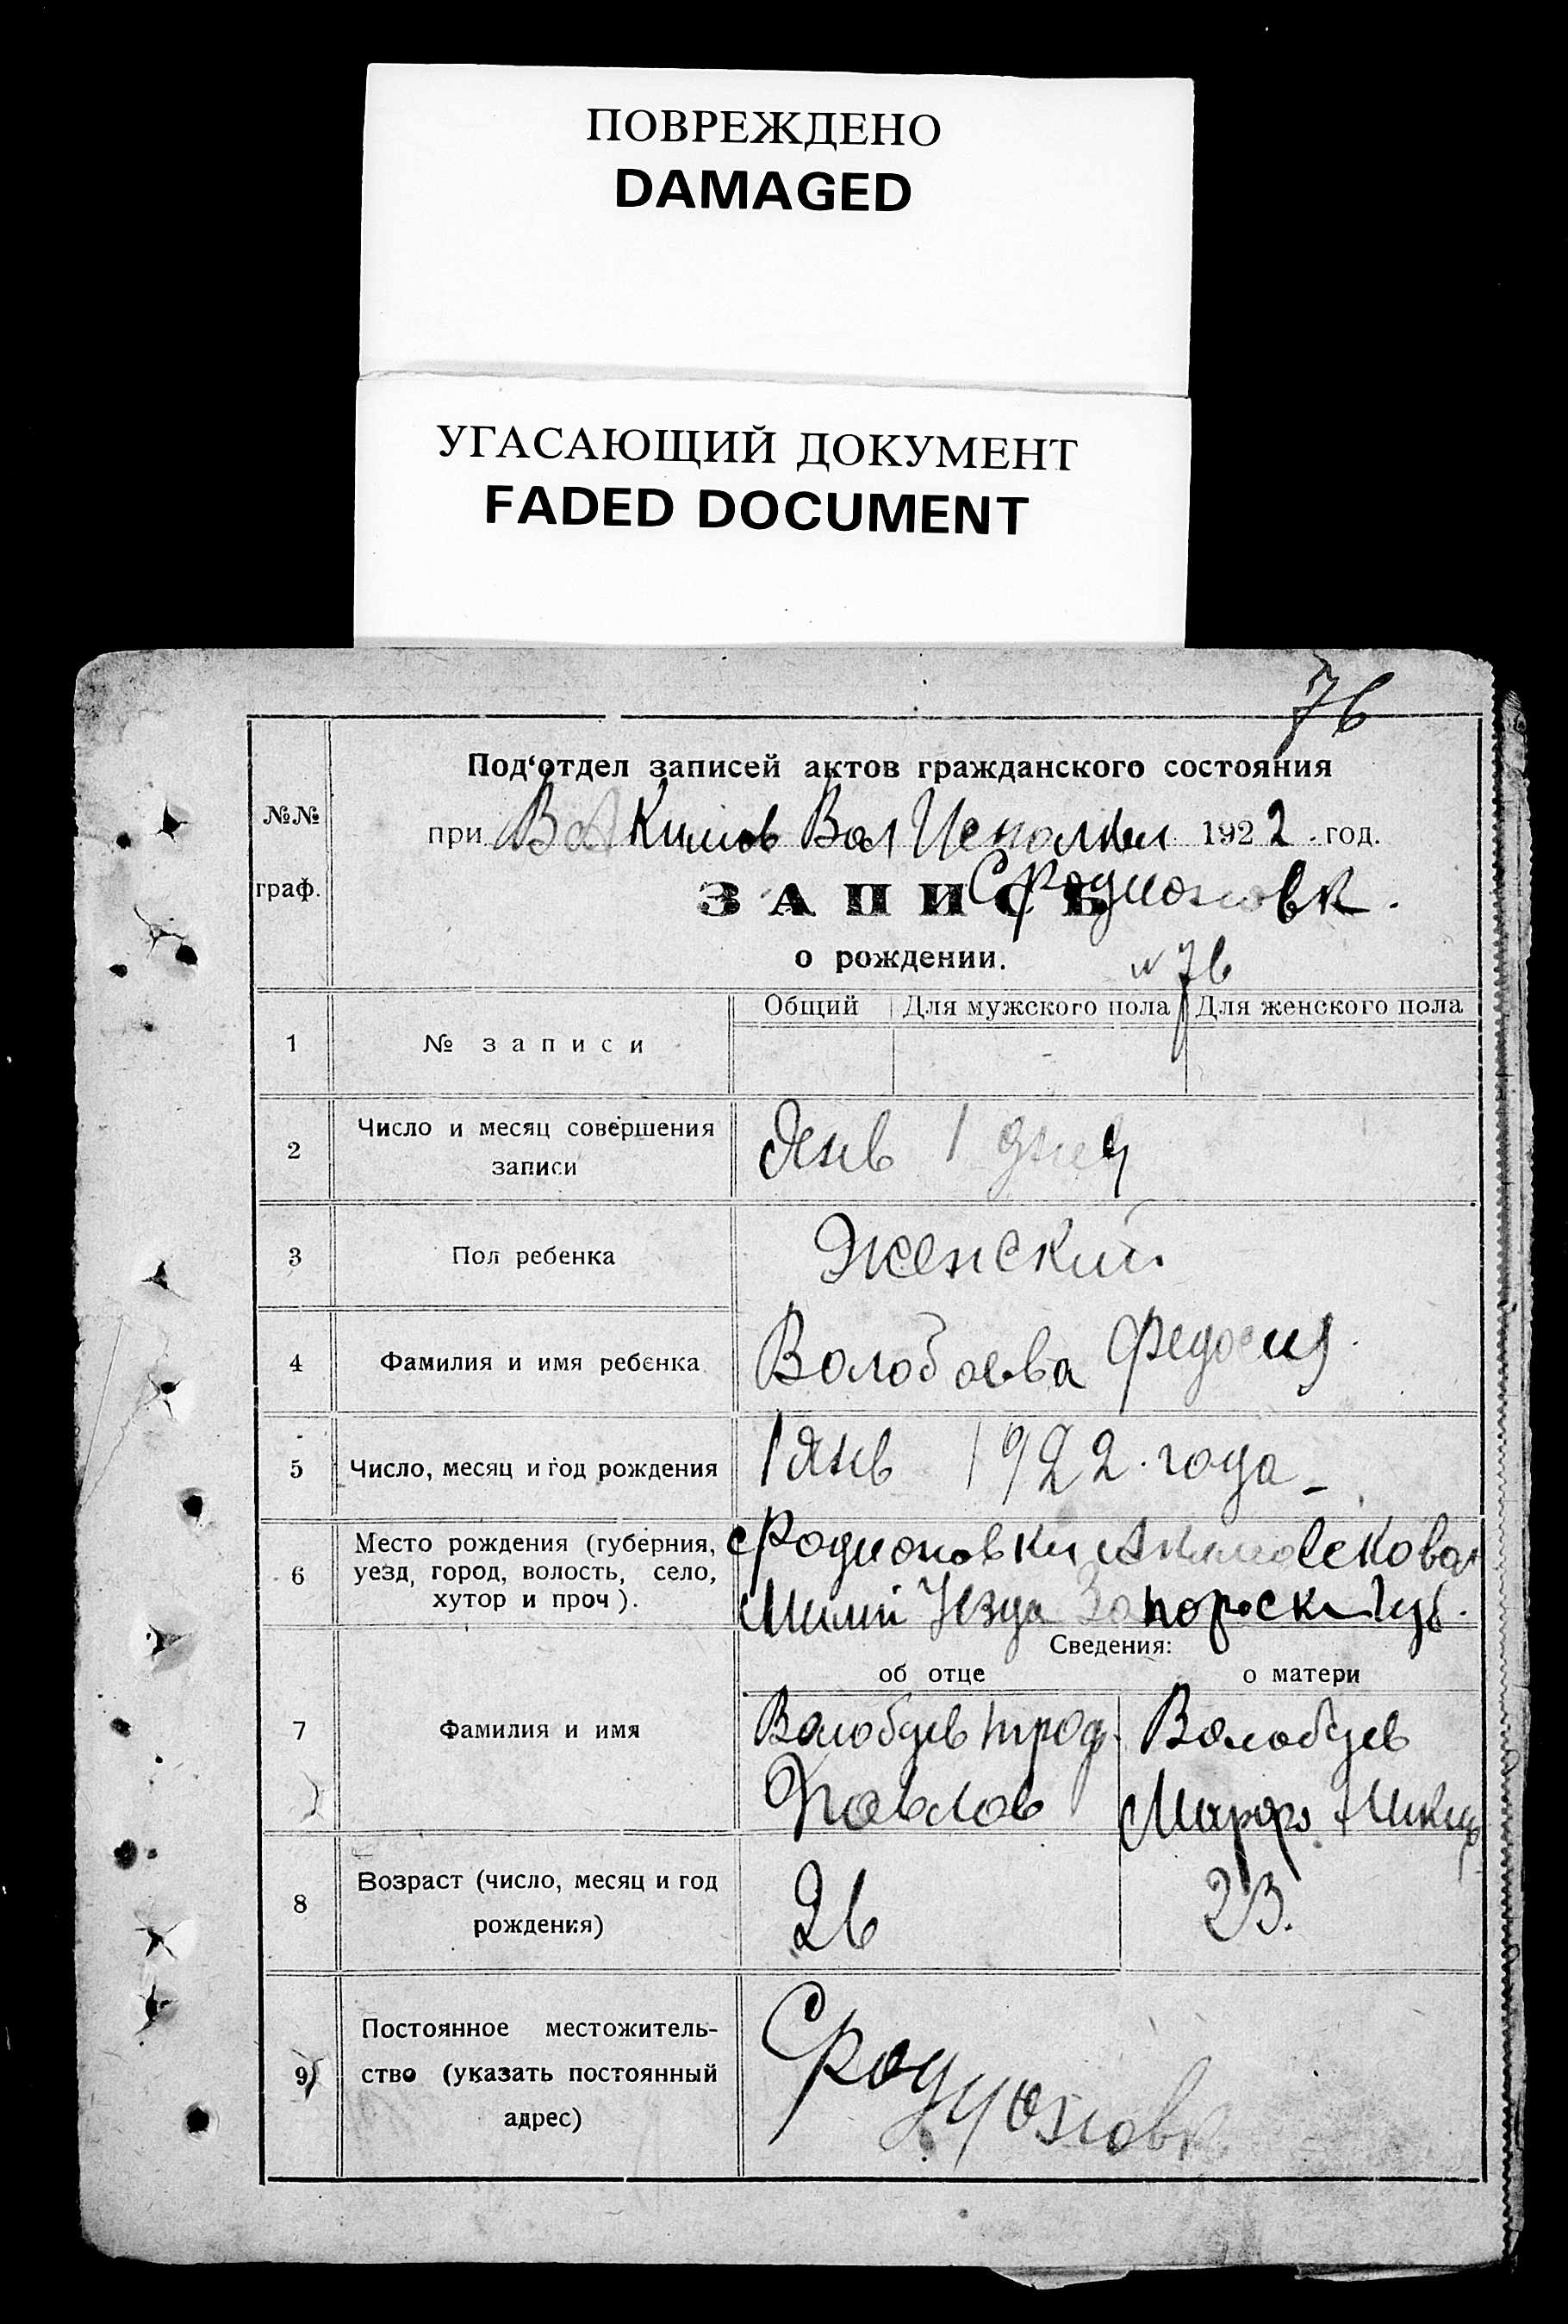 ПОВРЕЖДЕНО
DAMAGED
УГАСАЮЩИЙ ДОКУМЕНТ
FADED DOCUMENT
76
Под‘отдел записей актов гражданского состояния
№№ граф.
при Акимов Вол Исполком 1922 год.
ЗАПИСЬ
С Родионовк.
о рождении.
№ 76
Общий Для мужского пола Для женского пола
1 № записи
2 Число и месяц совершения записи Янв 1 дня
3 Пол ребенка Женский
4 Фамилия и имя ребенка Волобоева Федосия
5 Число, месяц и год рождения 1 Янв 1922 года
6 Место рождения (губерния, уезд, город, волость, село, хутор и проч). с Родионовки Акимовск
Уезда Запороск Губ.
Сведения:
об отце о матери
7 Фамилия и имя Волобуев Волобуев
Павлов Марфа
8 Возраст (число, месяц и год рождения) 26 23.
9 Постоянное местожительство (указать постоянный адрес) С Родионовк